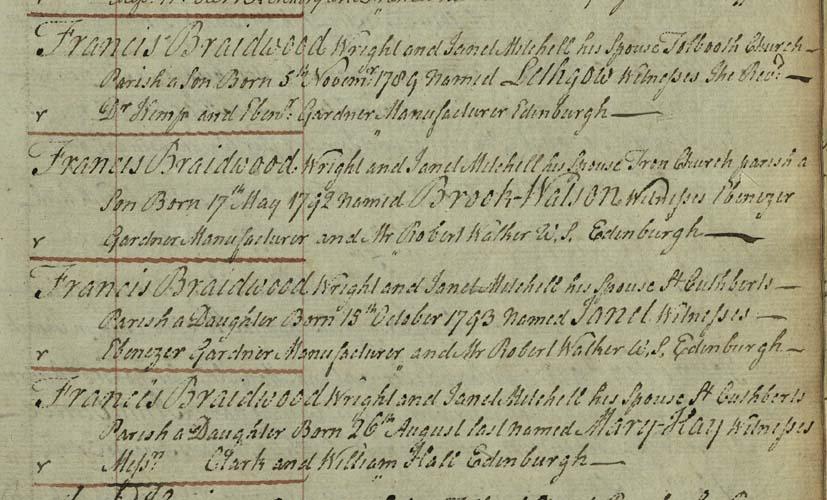 Francis Braidwood Wright and Janet Mitchell his Spouse Tolbooth Church
Parish a Son Born 5th Novemr 1789 named Lethgow Witnesses The Revd
v Dr Kemp and Ebenr Gardner Manufacturer Edinburgh
Francis Braidwood Wright and Janet Mitchell his Spouse Tron Church parish a
Son Born 17th May 1792 named Brook-Watson Witnesses Ebenezer
v Gardner Manufacturer and Mr Robert Walker W.S. Edinburgh
Francis Braidwood Wright and Janet Mitchell his Spouse St Cuthberts
Parish a Daughter Born 15th October 1793 named Janet Witnesses
v Ebenezer Gardner Manufacturer and Mr Robert Walker W.S. Edinburgh
Francis Braidwood Wright and Janet Mitchell his Spouse St Cuthberts
Parish a Daughter Born 26th August last named Mary-Hay Witnesses
v Messrs Clark and William Hall Edinburgh